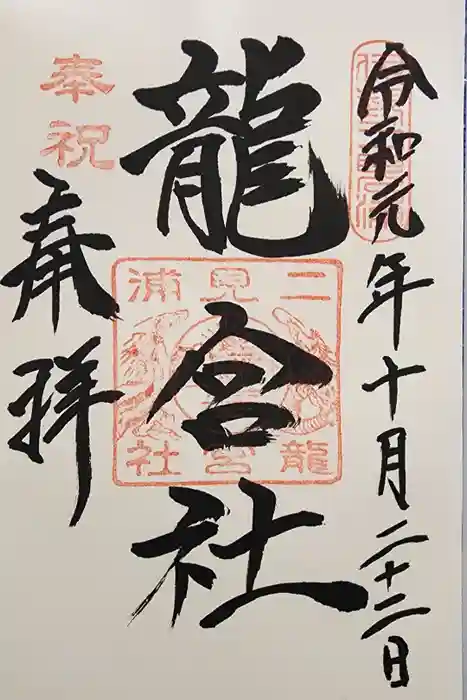 令和元年十月二十二日
龍宮社
二見浦
龍宮社
奉祝
奉拝